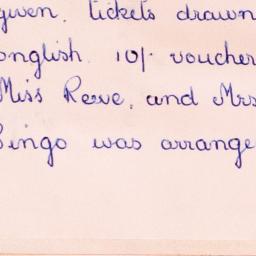 given, tickets drawn
onglish. 10/- voucher
Miss Reeve, and Mrs
Bingo was arrange